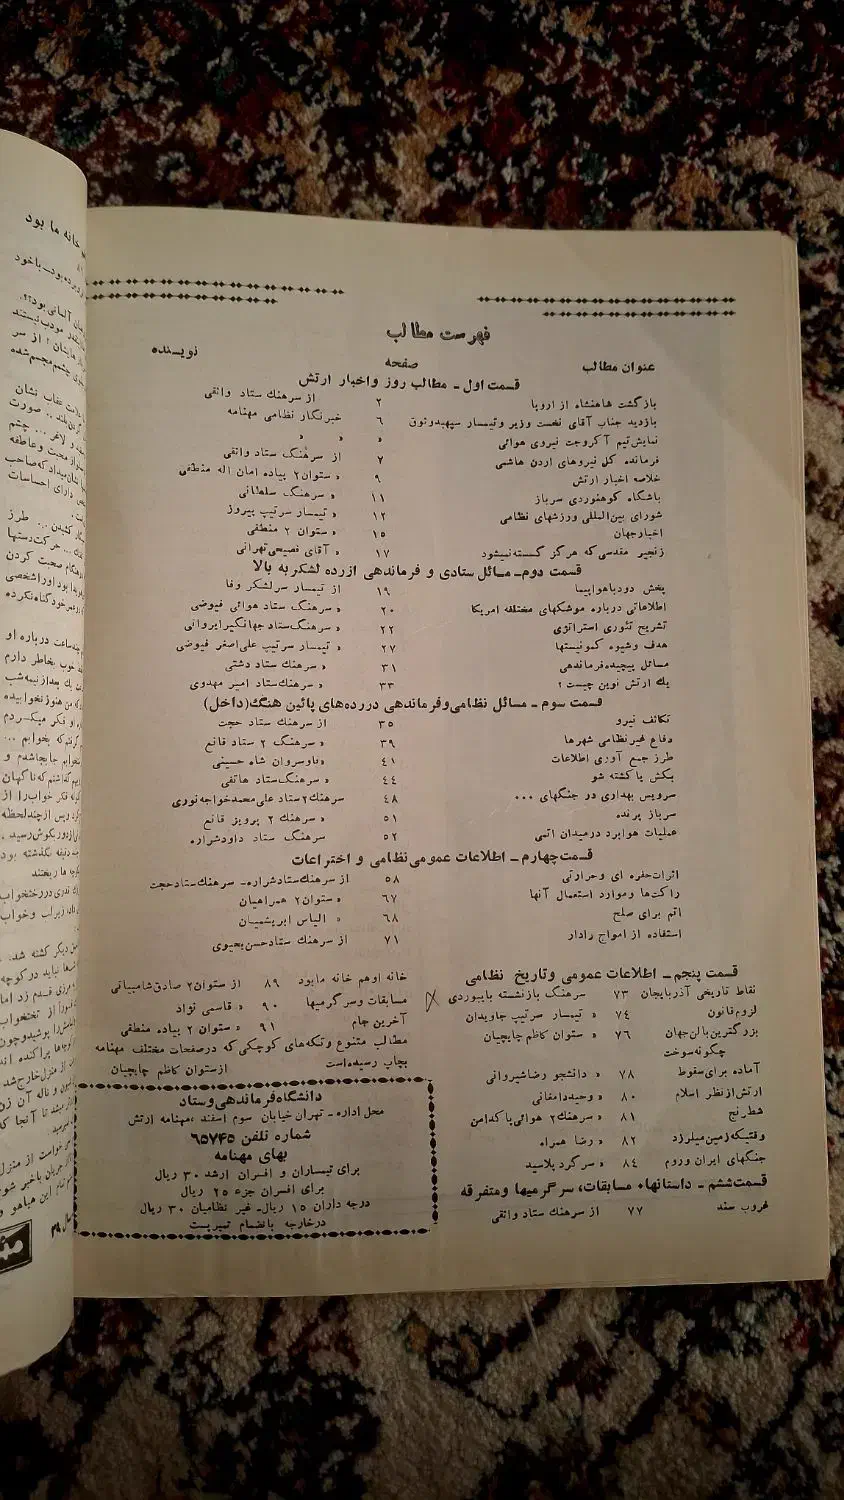 فهرست مطالب
عنوان مطالب صفحه نویسنده
قسمت اول ـ مطالب روز واخبار ارتش
بازگشت شاهنشاه از اروپا ۲ از سرهنك ستاد واثقی
بازدید جناب آقای نخست وزیر وتیمسار سپهبدوثوق ۶ خبرنگار نظامی مهنامه
نمایش‌تیم آکروجت نیروی هوائی » » »
فرمانده کل نیروهای اردن هاشمی ۷ از سرهنگ ستاد واثقی
خلاصه اخبار ارتش ۹ » ستوان۲ پیاده امان اله منطقی
باشگاه کوهنوردی سرباز ۱۱ » سرهنگ سلطانی
شورای بین‌المللی ورزشهای نظامی ۱۲ » تیمسار سرتیپ پیروز
اخبارجهان ۱۵ » ستوان ۲ منطقی
زنجیر مقدسی که هرگز گسسته‌نمیشود ۱۷ » آقای فصیحی‌تهرانی
قسمت دوم ـ مسائل ستادی و فرماندهی ازرده لشکر به بالا
پخش دودباهواپیما ۱۹ از تیمسار سرلشکر وفا
اطلاعاتی درباره موشکهای مختلفه امریکا ۲۰ » سرهنگ ستاد هوائی فیوضی
تشریح تئوری استراتژی ۲۲ » سرهنگ‌ستاد جهانگیرایروانی
هدف وشیوه کمونیستها ۲۷ » تیمسار سرتیپ علی‌اصغر فیوضی
مسائل پیچیده‌فرماندهی ۳۱ » سرهنك ستاد دشتی
یك ارتش نوین چیست ؟ ۳۳ » سرهنك‌ستاد امیر مهدوی
قسمت سوم ـ مسائل نظامی‌وفرماندهی دررده‌های پائین هنگ(داخل)
تکاثف نیرو ۳۵ از سرهنك ستاد حجت
دفاع غیرنظامی شهرها ۳۹ » سرهنگ ۲ ستاد قانع
طرز جمع آوری اطلاعات ۴۱ » ناوسروان شاه حسینی
بکش یاکشته شو ۴۴ » سرهنگ‌ستاد هاتفی
سرویس بهداری در جنگهای ... ۴۸ سرهنك۲ستاد علی‌محمدخواجه‌نوری
سرباز پرنده ۵۱ » سرهنك ۲ پرویز قانع
عملیات هوابرد درمیدان اتمی ۵۲ سرهنگ ستاد داودشراره
قسمت‌چهارم ـ اطلاعات عمومی‌نظامی و اختراعات
اثرات‌حفره ای وحرارتی ۵۸ از سرهنك‌ستادشراره ـ سرهنك‌ستادحجت
راکت‌ها وموارد استعمال آنها ۶۷ » ستوان۲ همراهیان
اتم برای صلح ۶۸ » الیاس ابریشمیان
استفاده از امواج رادار ۷۱ از سرهنگ ستادحسن‌یحیوی
قسمت پنجم ـ اطلاعات عمومی وتاریخ نظامی
نقاط تاریخی آذربایجان ۷۳ سرهنگ بازنشسته بایبوردی
لزوم‌قانون ۷۴ » تیمسار سرتیپ جاویدان
بزرگترین‌بالن‌جهان ۷۶ » ستوان کاظم چاپچیان
چگونه‌سوخت
آماده برای‌سقوط ۷۸ » دانشجو رضاشیروانی
ارتش‌ازنظر اسلام ۸۰ » وحیددامغانی
شطرنج ۸۱ » سرهنك۲ هوائی پاکدامن
وقتیکه‌زمین‌میلرزد ۸۲ » رضا همراه
جنگهای ایران وروم ۸۴ » سرگرد پلاسید
قسمت‌ششم ـ داستانها، مسابقات، سرگرمیها ومتفرقه
غروب سند ۷۷ از سرهنك ستاد واثقی
خانه اوهم خانه مابود ۸۹ از ستوان۲ صادق‌شامبیاتی
مسابقات وسرگرمیها ۹۰ » قاسمی نژاد
آخرین جام ۹۱ » ستوان ۲ پیاده منطقی
مطالب متنوع وتکه‌های کوچکی‌که درصفحات مختلف مهنامه
بچاپ رسیده‌است ازستوان کاظم چاپچیان
دانشگاه فرماندهی‌وستاد
محل اداره ـ تهران‌خیابان سوم اسفند ،مهنامه ارتش
شماره تلفن ۶۵۷۴۵
بهای مهنامه
برای تیمساران و افسران ارشد ۳۰ ریال
برای افسران جزء ۲۵ ریال
درجه داران ۱۵ ریال ـ غیر نظامیان ۳۰ ریال
درخارجه باانضمام تمبرپست